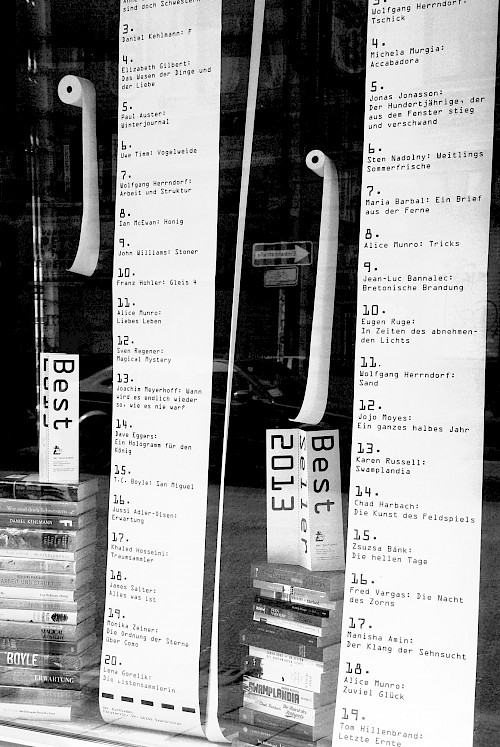 sind doch Schwestern
3.
Daniel Kehlmann: F
4.
Elizabeth Gilbert:
Das Wesen der Dinge und
der Liebe
5.
Paul Auster:
Winterjournal
6.
Uwe Timm: Vogelweide
7.
Wolfgang Herrndorf:
Arbeit und Struktur
8.
Ian McEwan: Honig
9.
John Williams: Stoner
10.
Franz Hohler: Gleis 4
11.
Alice Munro:
Liebes Leben
12.
Sven Regener:
Magical Mystery
13.
Joachim Meyerhoff: Wann
wird es endlich wieder
so, wie es nie war?
14.
Dave Eggers:
Ein Hologramm für den
König
15.
T.C. Boyle: San Miguel
16.
Jussi Adler-Olsen:
Erwartung
17.
Khaled Hosseini:
Traumsammler
18.
James Salter:
Alles was ist
19.
Monika Zeiner:
Die Ordnung der Sterne
über Como
20.
Lena Gorelik:
Die Listensammlerin
3.
Wolfgang Herrndorf:
Tschick
4.
Michela Murgia:
Accabadora
5.
Jonas Jonasson:
Der Hundertjährige, der
aus dem Fenster stieg
und verschwand
6.
Sten Nadolny: Weitlings
Sommerfrische
7.
Maria Barbal: Ein Brief
aus der Ferne
8.
Alice Munro: Tricks
9.
Jean-Luc Bannalec:
Bretonische Brandung
10.
Eugen Ruge:
In Zeiten des abnehmen-
den Lichts
11.
Wolfgang Herrndorf:
Sand
12.
Jojo Moyes:
Ein ganzes halbes Jahr
13.
Karen Russell:
Swamplandia
14.
Chad Harbach:
Die Kunst des Feldspiels
15.
Zsuzsa Bánk:
Die hellen Tage
16.
Fred Vargas: Die Nacht
des Zorns
17.
Manisha Amin:
Der Klang der Sehnsucht
18.
Alice Munro:
Zuviel Glück
19.
Tom Hillenbrand:
Letzte Ernte
Best
Best
Seller
2013
DANIEL KEHLMANN F
ARBEIT UND STRUKTUR
MAGICAL
BOYLE
ERWARTUNG
SWAMPLANDIA